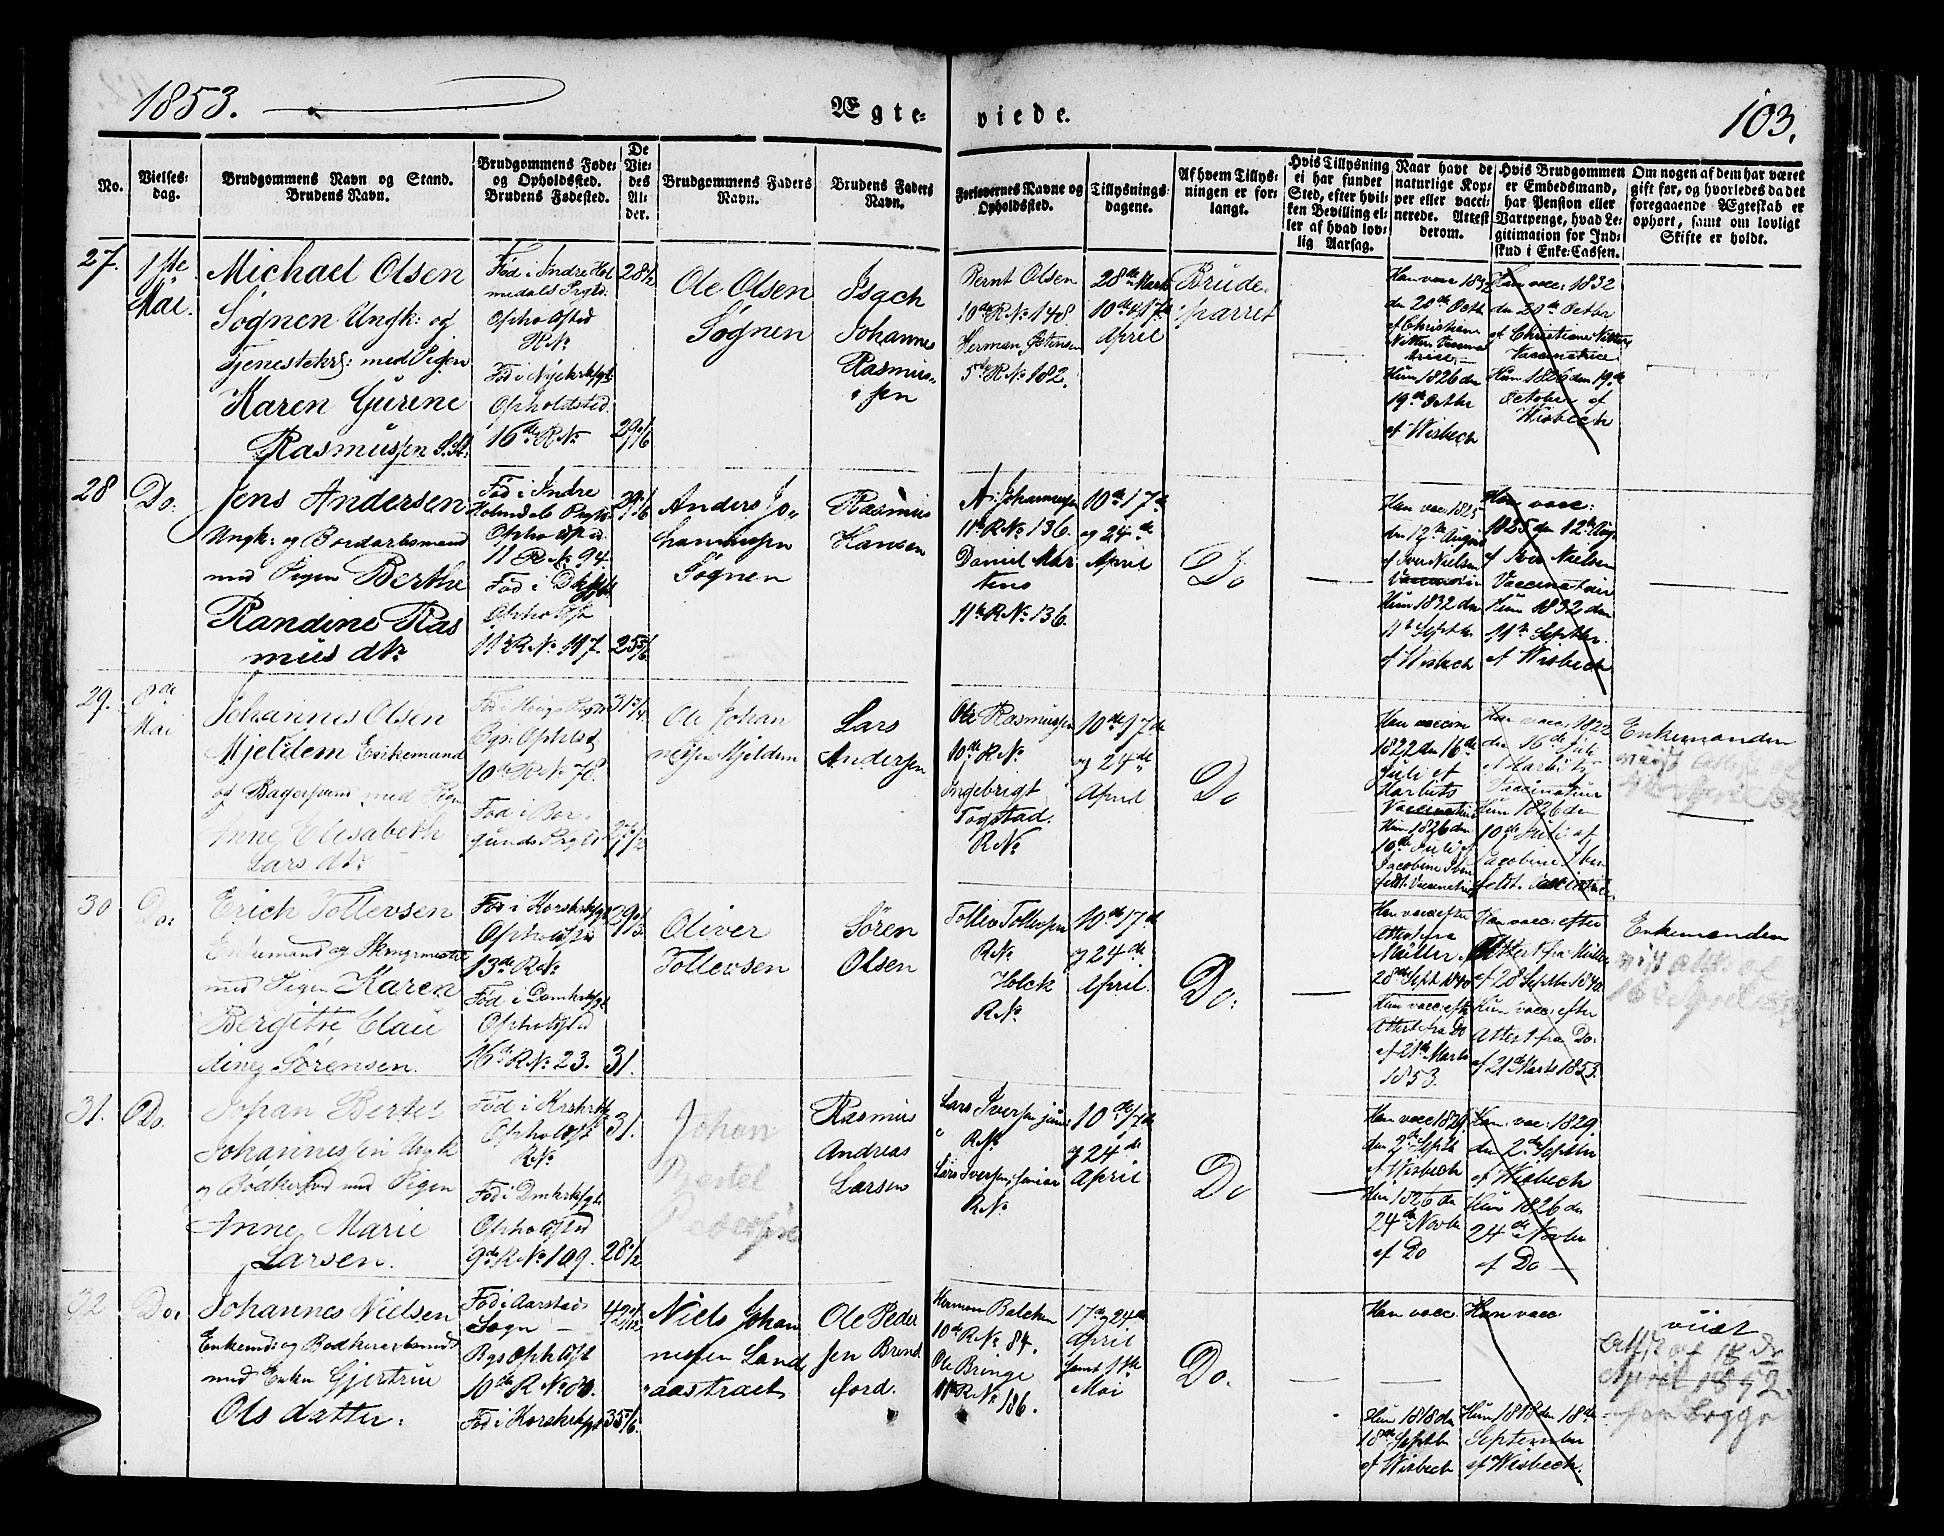 1853.
Ægte-
viede.
103.
No.
Vielses-
dag.
Brudgommens Navn og Stand.
Brudens Navn.
Brudgommens Føde-
og Opholdssted.
Brudens Fødested.
De
Vie-
des
Al-
der.
Brudgommens Faders
Navn.
Brudens Faders
Navn.
Forlovernes Navne og
Opholdssted.
Tillysnings-
dagene.
Af hvem Tillys-
ningen er for-
langt.
Hvis Tillysning
ei har fundet
Sted, efter hvil-
ken Bevilling el-
ler af hvad lov-
lig Aarsag.
Naar havt de
naturlige Kop-
per eller vacci-
nerede. Attest
derom.
Hvis Brudgommen
er Embedsmand,
har Pension eller
Vartpenge, hvad Le-
gitimation for Ind-
skud i Enke-Cassen.
Om nogen af dem har været
gift før, og hvorledes da det
foregaaende Ægteskab er
ophørt, samt om lovligt
Skifte er holdt.
27.
1ste
Mai.
Michael Olsen
Søgnen Ungk: og
Tjenestekrl: med Pigen
Karen Gurene
Rasmussen
Fød i Indre Hol
medals Prgld.
Opholdsted
R No
Fød i Nykirksgt
Opholdsted
16de R No
28 1/2
29 1/6
Ole Olsen
Søgnen
Isach
Johannes
Rasmus-
sen
Bernt Olsen
10de R No 148.
Herman Ostensen
5te R No 182.
28de Marts
10de og 17de
April
Brude-
parret
Han vacc 1832
den 20de Octb
af Christiane
Nitter Vaccina
trice
Hun 1826 den
19de Octbr
af Wisbech
Han vacc: 1832
den 20de Octbr
af Christiane Nitter
Vaccinatrice
Hun 1826 den 19de
October af
Wisbech
28
Do.
Jens Andersen
Ungk: og Bordarbsmand
med Pigen Berthe
Randine Ras
mus dtr
Fød i Indre
Holmedals Prgld.
Opholdsted
11 R No 94.
Fød i Dkksgt
Opholdst
11te R No 117.
29 1/6
25 5/6
Anders Jo-
hannessen
Søgnen
Rasmus
Hansen
A: Johannessen
11te R No 136.
Daniel Mar
tens
11te R No 136.
10de 17de
og 24de
April
Do
Han vacc 1825
den 12te August
af Iver Nielsen
Vaccinatør
Hun 1832 den
11te Septbr
af Wisbech
Han vacc:
1825 den 12te Aug.
af Iver Nielsen
Vaccinatør
Hun 1832 den
11te Septbr.
af Wisbech
29.
8de
Mai
Johannes Olsen
Mjeldem Enkemand
og Bagersvend med Pigen
Anne Elisabeth
Lars dtr
Fød i Haugs Prgld
Bgs: Opholdst
10de R No 78.
Fød i Bor-
gunds Prgld
31 3/4
27 1/2
Ole Johan
nessen Mjeldem
Lars
Andersen
Ole Rasmussen
10de R No
Ingebrigt
Togstad.
R No
10de 17de
og 24de
April
Do
Han vaccine
1822 den 16de
Juli af
Harbits
Vaccinatør
Hun 1826 den
10de Juli af
Jacobine Iben
feldt Vaccinatrice
Han vacc: 1822
den 16de Juli
af Harbits
Vaccinatør
Hun 1826 den
10de Juli af
Jacobine Iben
feldt. Vaccinatrice
Enkemanden
viist Attest af
30
Do:
Erich Tollevsen
Enkemand og
med Pigen Karen
Bergitte Clau
dine Sørensen.
Fød i Korskrksgt
Opholdsted
13de R No
Fød i Domkrksgt
Opholdsted
16de R No 23.
29 1/3
31.
Oliver
Tollevsen
Sören
Olsen
Tollev Tollevsen
R No
Holck
R No.
10de 17de
og 24de
April.
Do:
Han vacc efter
Attest fra
Müller af
28de Sept 1840
Hun vacc: efter
Attest fra Do
af 21de Marts
1853.
Han vacc: efter
Attest fra Müller
af 28 Septbr 1840.
Hun vacc: efter
Attest fra Do.
af 21de Marts 1853.
Enkemanden
viist Attest af
16de April
31.
Do.
Johan Bertel
Johannessen Ungk
og Bødkersvd med Pigen
Anne Marie
Larsen.
Fød i Krskrksgt
Opholdst
R No
Fød i Dmkrksgt
Opholdsted
9de R No 109.
31.
28 1/2
Johan
Bertel
Petersen
Rasmus
Andreas
Larsen
Lars Iversen junr:
R No
Lars Iversen senior
R No
10de 17de
og 24de
April
Do
Han vacc 1829
den 2de Septb
af Wisbech
Hun 1826 den
24de Novbr
af Do
Han vacc: 1829.
den 2de Septbr
af Wisbech
Hun 1826 den
24de Novbr
af Do
32
Do:
Johannes Nielsen
Enkemd: og Bødkerarbsmd
med Enken Gjertrue
Ols datter.
Fød i Aarstads
Sogn
Bgs Opholdst
10de R No 80.
Fød i Korskrksgt
42 1/12
35 5/6
Niels Johan
nessen Land
aastræet
Ole Peder
sen Brend
ford.
Herman Balchen
10de R No 84.
Ole Bringe
11te R No 186.
17de og 24de
April
samt 1ste
Mai
Do.
Han vacc
Hun 1818 den
18de Septbr
af Wisbech
Han vacc
Hun 1818 den 18de
September
af Wisbech.
viist
Attst af 18de
April 1852.
for begge